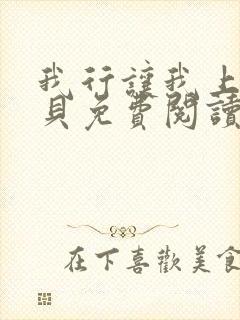 我行讓我上
貝免費閱讀
在下喜歡美食